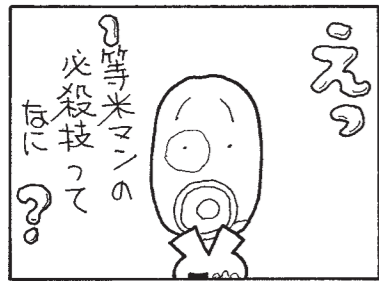 えっ
1等米マンの
必殺技って
なに?